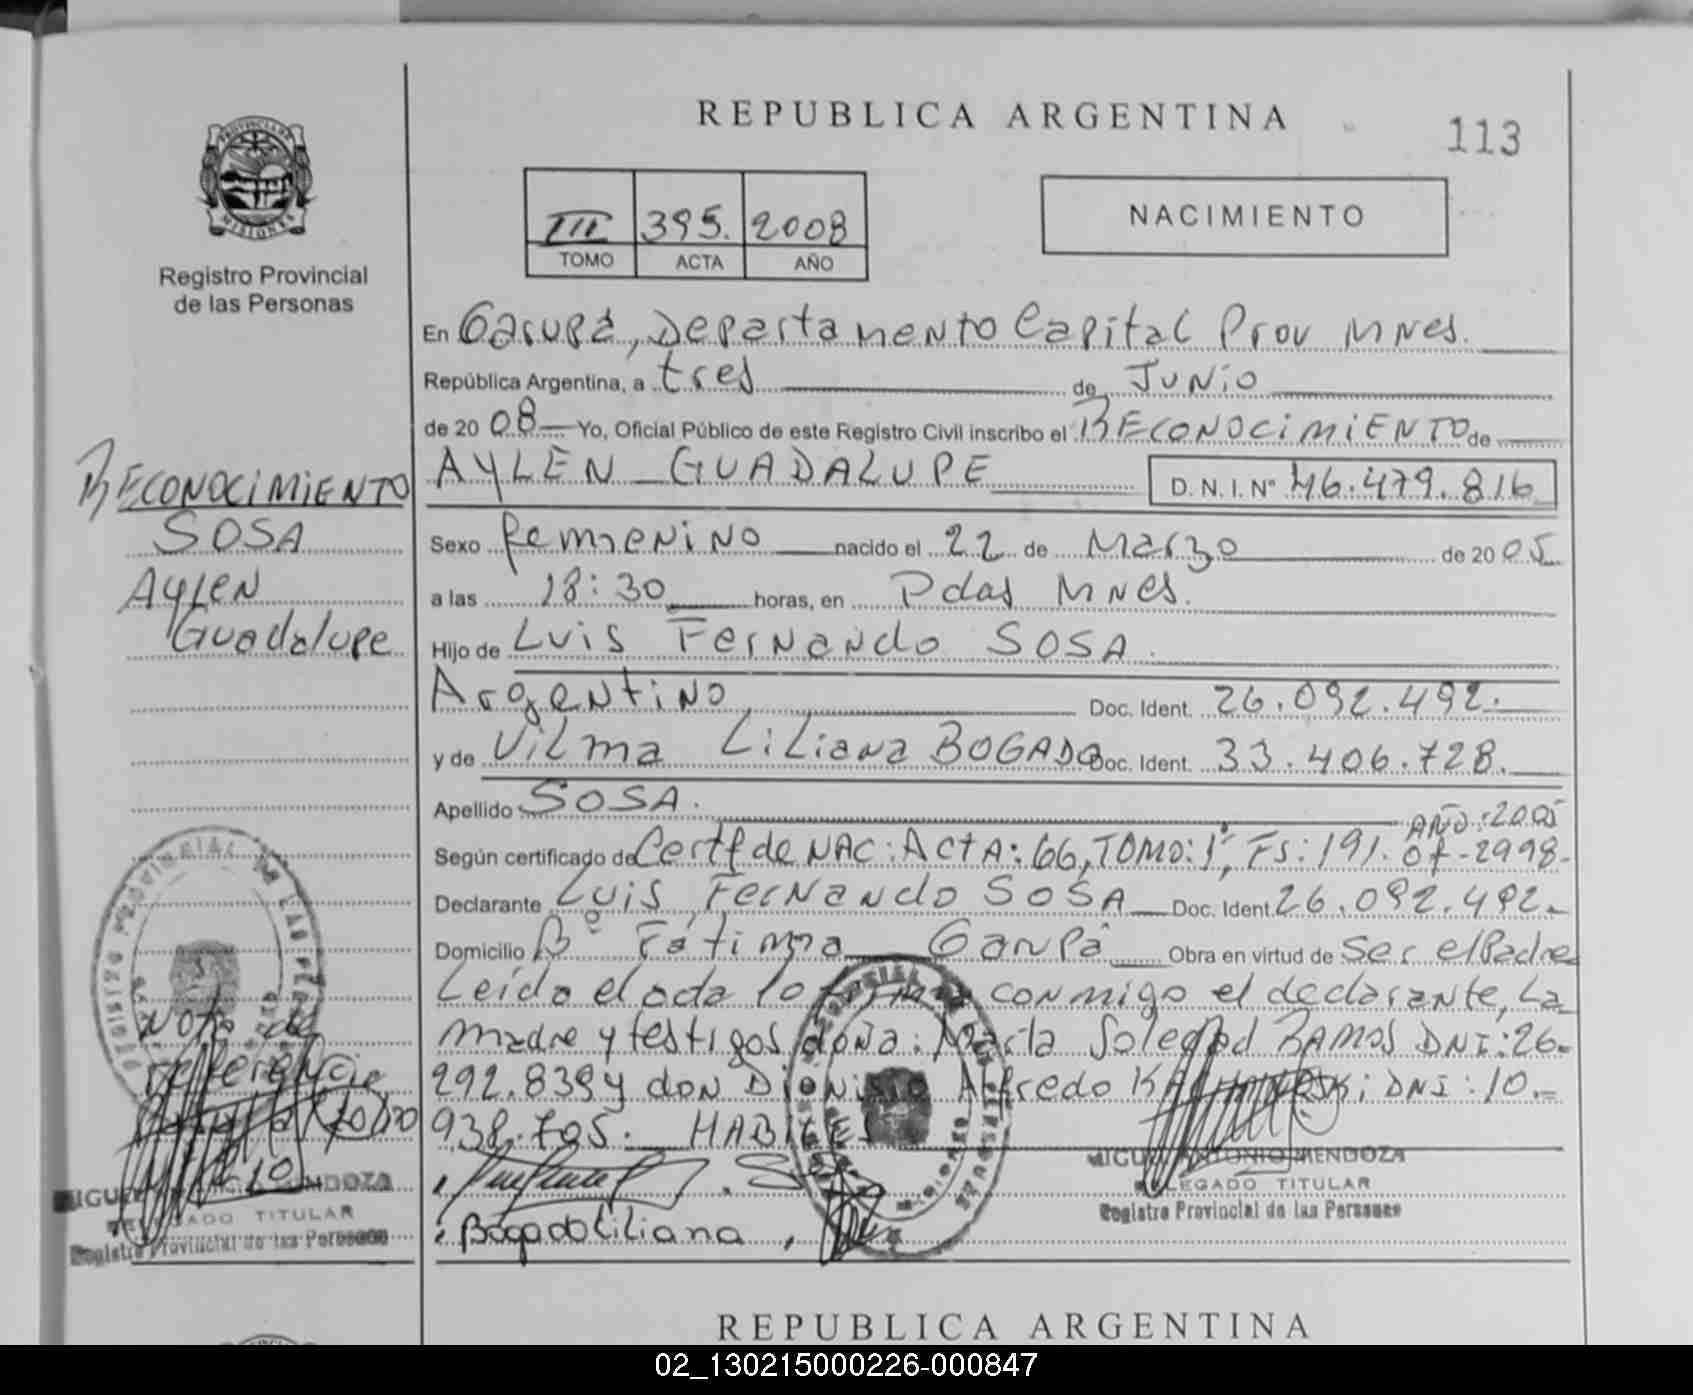 REPUBLICA ARGENTINA
113
PROVINCIA DE
MISIONES
Registro Provincial
de las Personas
III 395. 2008
TOMO ACTA AÑO
NACIMIENTO
En Garupá, Departamento Capital Prov Mnes.
República Argentina, a tres de Junio
de 20 08 Yo, Oficial Público de este Registro Civil inscribo el RECONOCIMIENTO de
AYLÉN GUADALUPE D.N.I. Nº 46.479.816
Sexo femenino nacido el 22 de Marzo de 20 05
a las 18:30 horas, en Pdas Mnes.
Hijo de Luis Fernando SOSA.
Argentino Doc. Ident. 26.092.492.
y de Vilma Liliana BOGADO Doc. Ident. 33.406.728.
Apellido SOSA.
AÑO:2005
Según certificado de Certf de NAC: ACTA: 66, TOMO: 1º, Fs: 191. Of-2998-
Declarante Luis Fernando SOSA Doc. Ident. 26.092.492.
Domicilio Bº Fátima Garupá Obra en virtud de Ser el Padre
Leída el acta lo firma conmigo el declarante, La
madre y testigos doña: María Soledad RAMOS DNI: 26.
292.839 y don Dionisio Alfredo DNI: 10.-
938.705. HABILES
Bogado Liliana
MIGUEL ANTONIO MENDOZA
DELEGADO TITULAR
Registro Provincial de las Personas
RECONOCIMIENTO
SOSA
AYLEN
Guadalupe
Nota de
referencia
MIGUEL ANTONIO MENDOZA
DELEGADO TITULAR
Registro Provincial de las Personas
REPUBLICA ARGENTINA
02_130215000226-000847